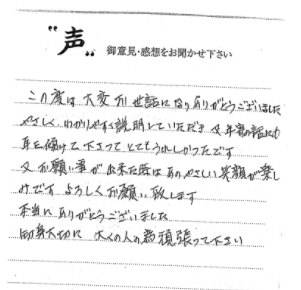 "声"
御意見・感想をお聞かせ下さい
この度は大変お世話になりありがとうございました
やさしく、わかりやすく説明していただき 又年寄の話にも
耳を傾けて下さって とてもうれしかったです
又お願い事が出来た時は あのやさしい笑顔が楽し
みです よろしくお願い致します
本当に ありがとうございました
御身大切に 大くの人の為頑張って下さい